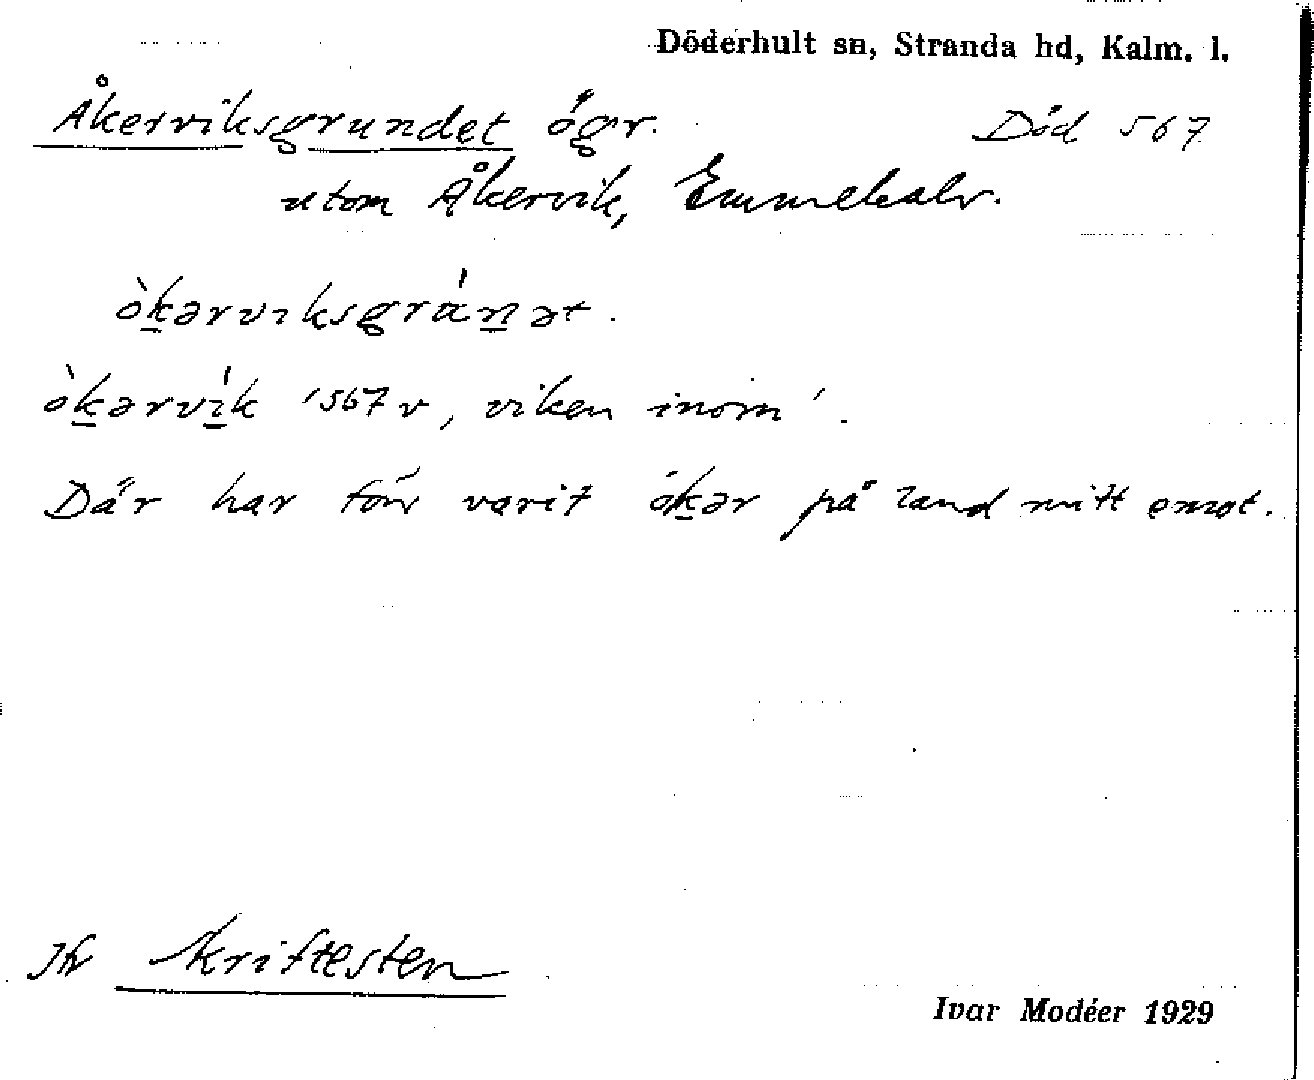 Döderhult sn, Stranda hd, Kalm. l.
Åkerviksgrundet ögr. Död 567
utom Åkervik, Emmekalv.
òkərviksgránət.
òkərvík '567 v, viken inom'.
Där har förr varit òkər på land mitt emot.
Jfr Kriftesten
Ivar Modéer 1929